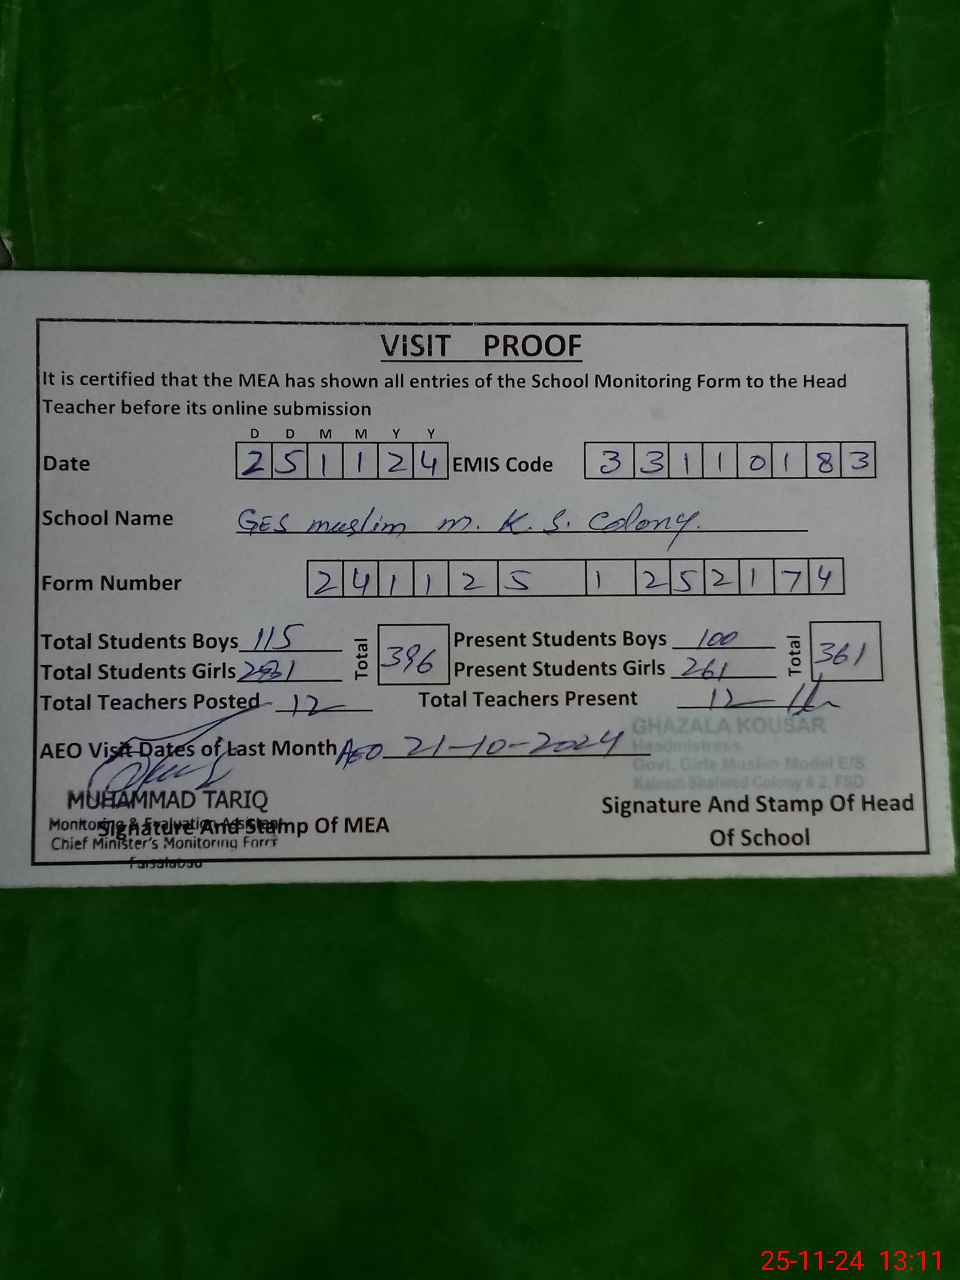 VISIT PROOF
It is certified that the MEA has shown all entries of the School Monitoring Form to the Head
Teacher before its online submission
D D M M Y Y
Date 2 5 1 1 2 4 EMIS Code 3 3 1 1 0 1 8 3
School Name GES muslim m. K. S. Colony.
Form Number 2 4 1 1 2 5 1 2 5 2 1 7 4
Total Students Boys 115 Total 396 Present Students Boys 100 Total 361
Total Students Girls Present Students Girls 261
Total Teachers Posted 12 Total Teachers Present 12
GHAZALA KOUSAR
Headmistress
Govt. Girls Muslim Model E/S
Colony # 2, FSD
AEO Visit Dates of Last Month AEO 21-10-2024
MUHAMMAD TARIQ
Monitoring & Evaluation Assistant
Signature And Stamp Of MEA
Chief Minister's Monitoring Force
Faisalabad
Signature And Stamp Of Head
Of School
25-11-24 13:11